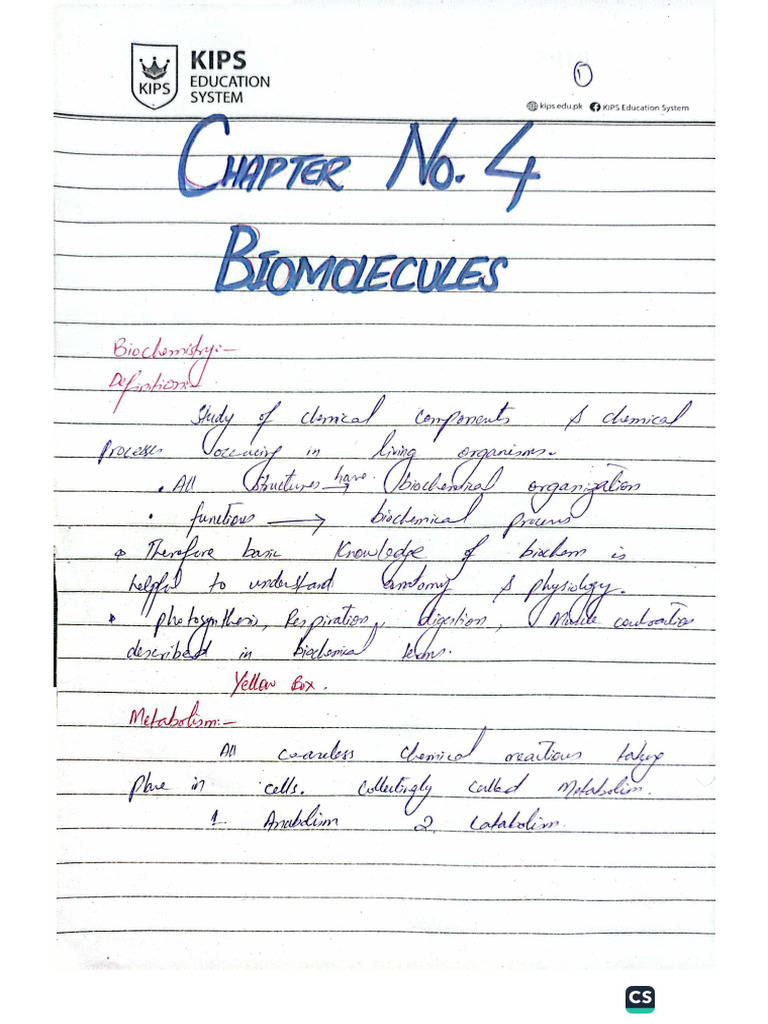 KIPS
EDUCATION
SYSTEM
KIPS
1
kips.edu.pk KIPS Education System
CHAPTER No. 4
BIOMOLECULES
Biochemistry:-
Definition:-
Study of chemical components & chemical
processes occuring in living organisms.
• All structures have → biochemical organization
• functions → biochemical process
Therefore basic Knowledge of biochem is
helpful to understand anatomy & physiology.
• photosynthesis, Respiration, digestion, Muscle contraction
described in biochemical terms.
Yellow Box.
Metabolism:-
All chemical reactions taking
place in cells. Collectingly called Metabolism.
1. Anabolism 2. Catabolism.
CS